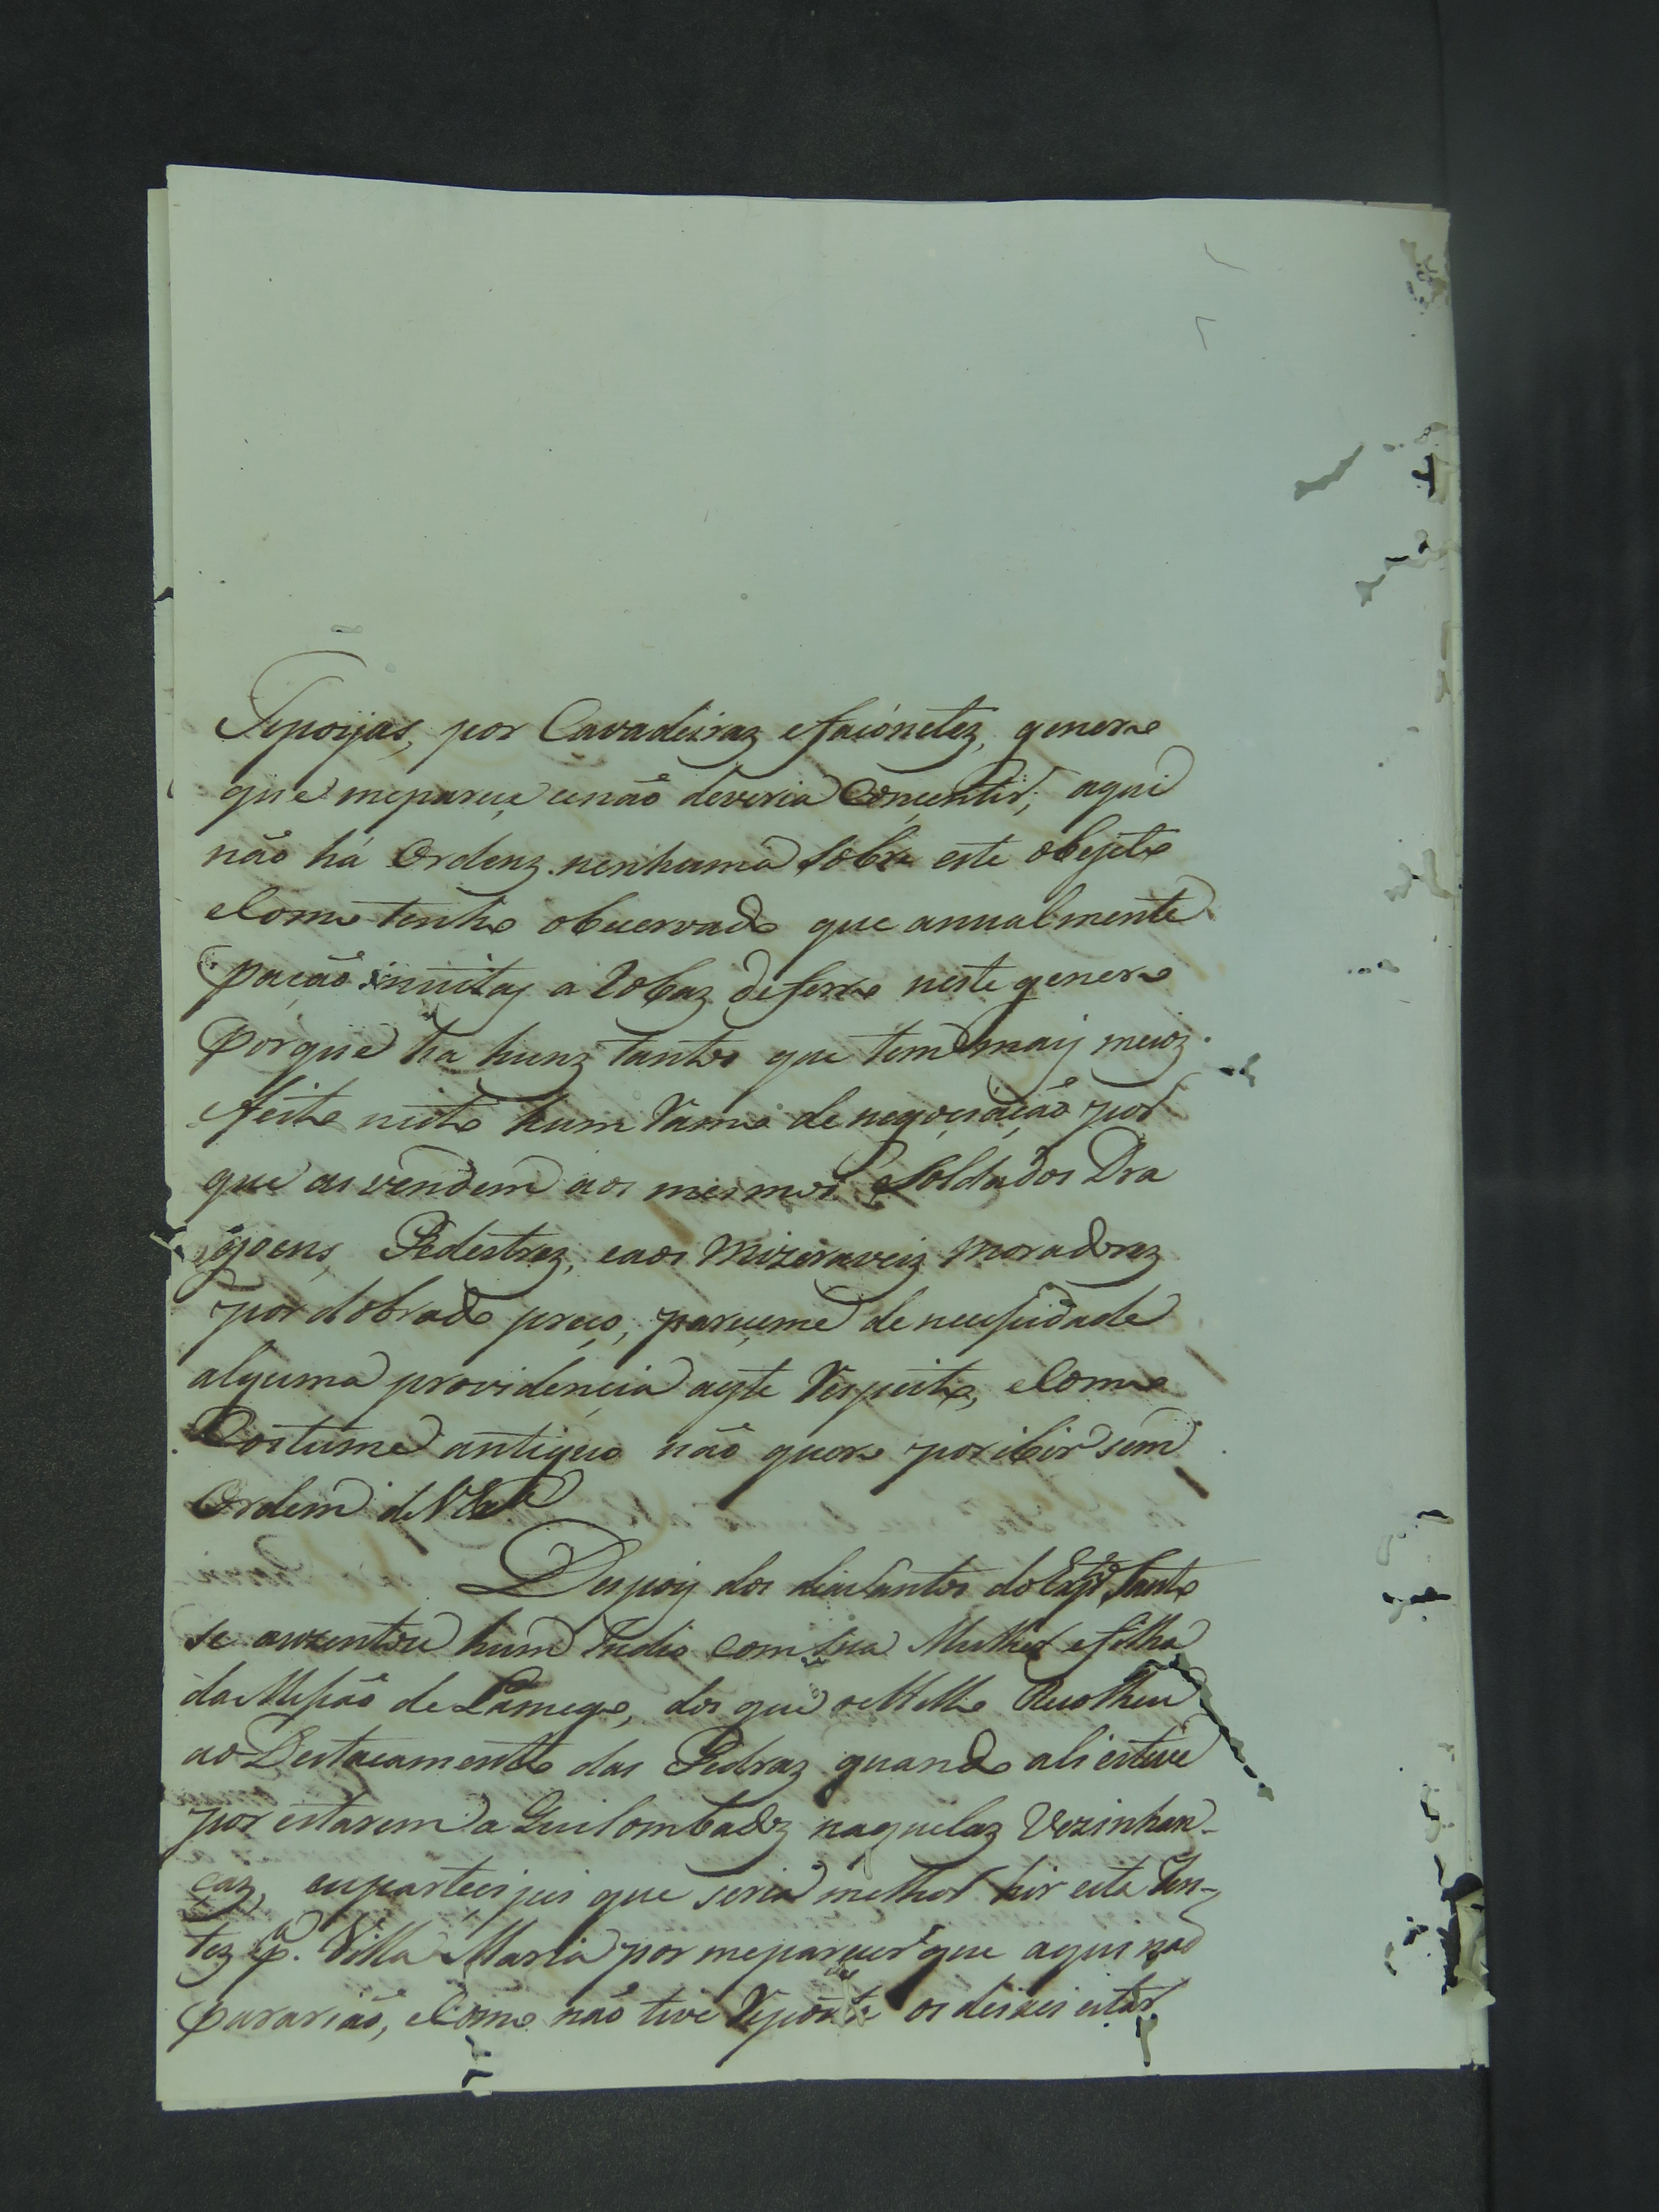 Tipoijas, por Cavadeiraz efaiónetez, genero
que meparece cenaõ deveria Conçentir, aqui
não há Ordenz nenhuma Sobre este obejeto
eComo tenho obcervado que anualmente
pação muitaj a Robaz deferro neste genero
Porque ha hunz tantos que tem maij meioz
feito nisto hum Ramo de negoçiação por
que as vendem aos mesmos Soldados Dra
goens, Pedestrez, eaos Mizeraveiz moradorez
por dobrado preço, pareçeme deneceſsidade
alguma providençia aeste Respeito, eComo
Costume antiguo não quero poribir sem
Ordem deVExª
Despoij dos dias Santos do Espº Santo
se auzentou hum Indio Com sua Mulher efilha
da Miſsão de Lamego, dos que Recolheu
ao Destacamento das Pedraz quando ali estive
por estarem a Quilombadoz naquelaz Vezinhan-
çaz, eupartecipei que seria melhor hir esta Gen-
tez pª. Villa Maria por meparecer que aqui não
pararião, eComo não tive Reposta os deixei estar